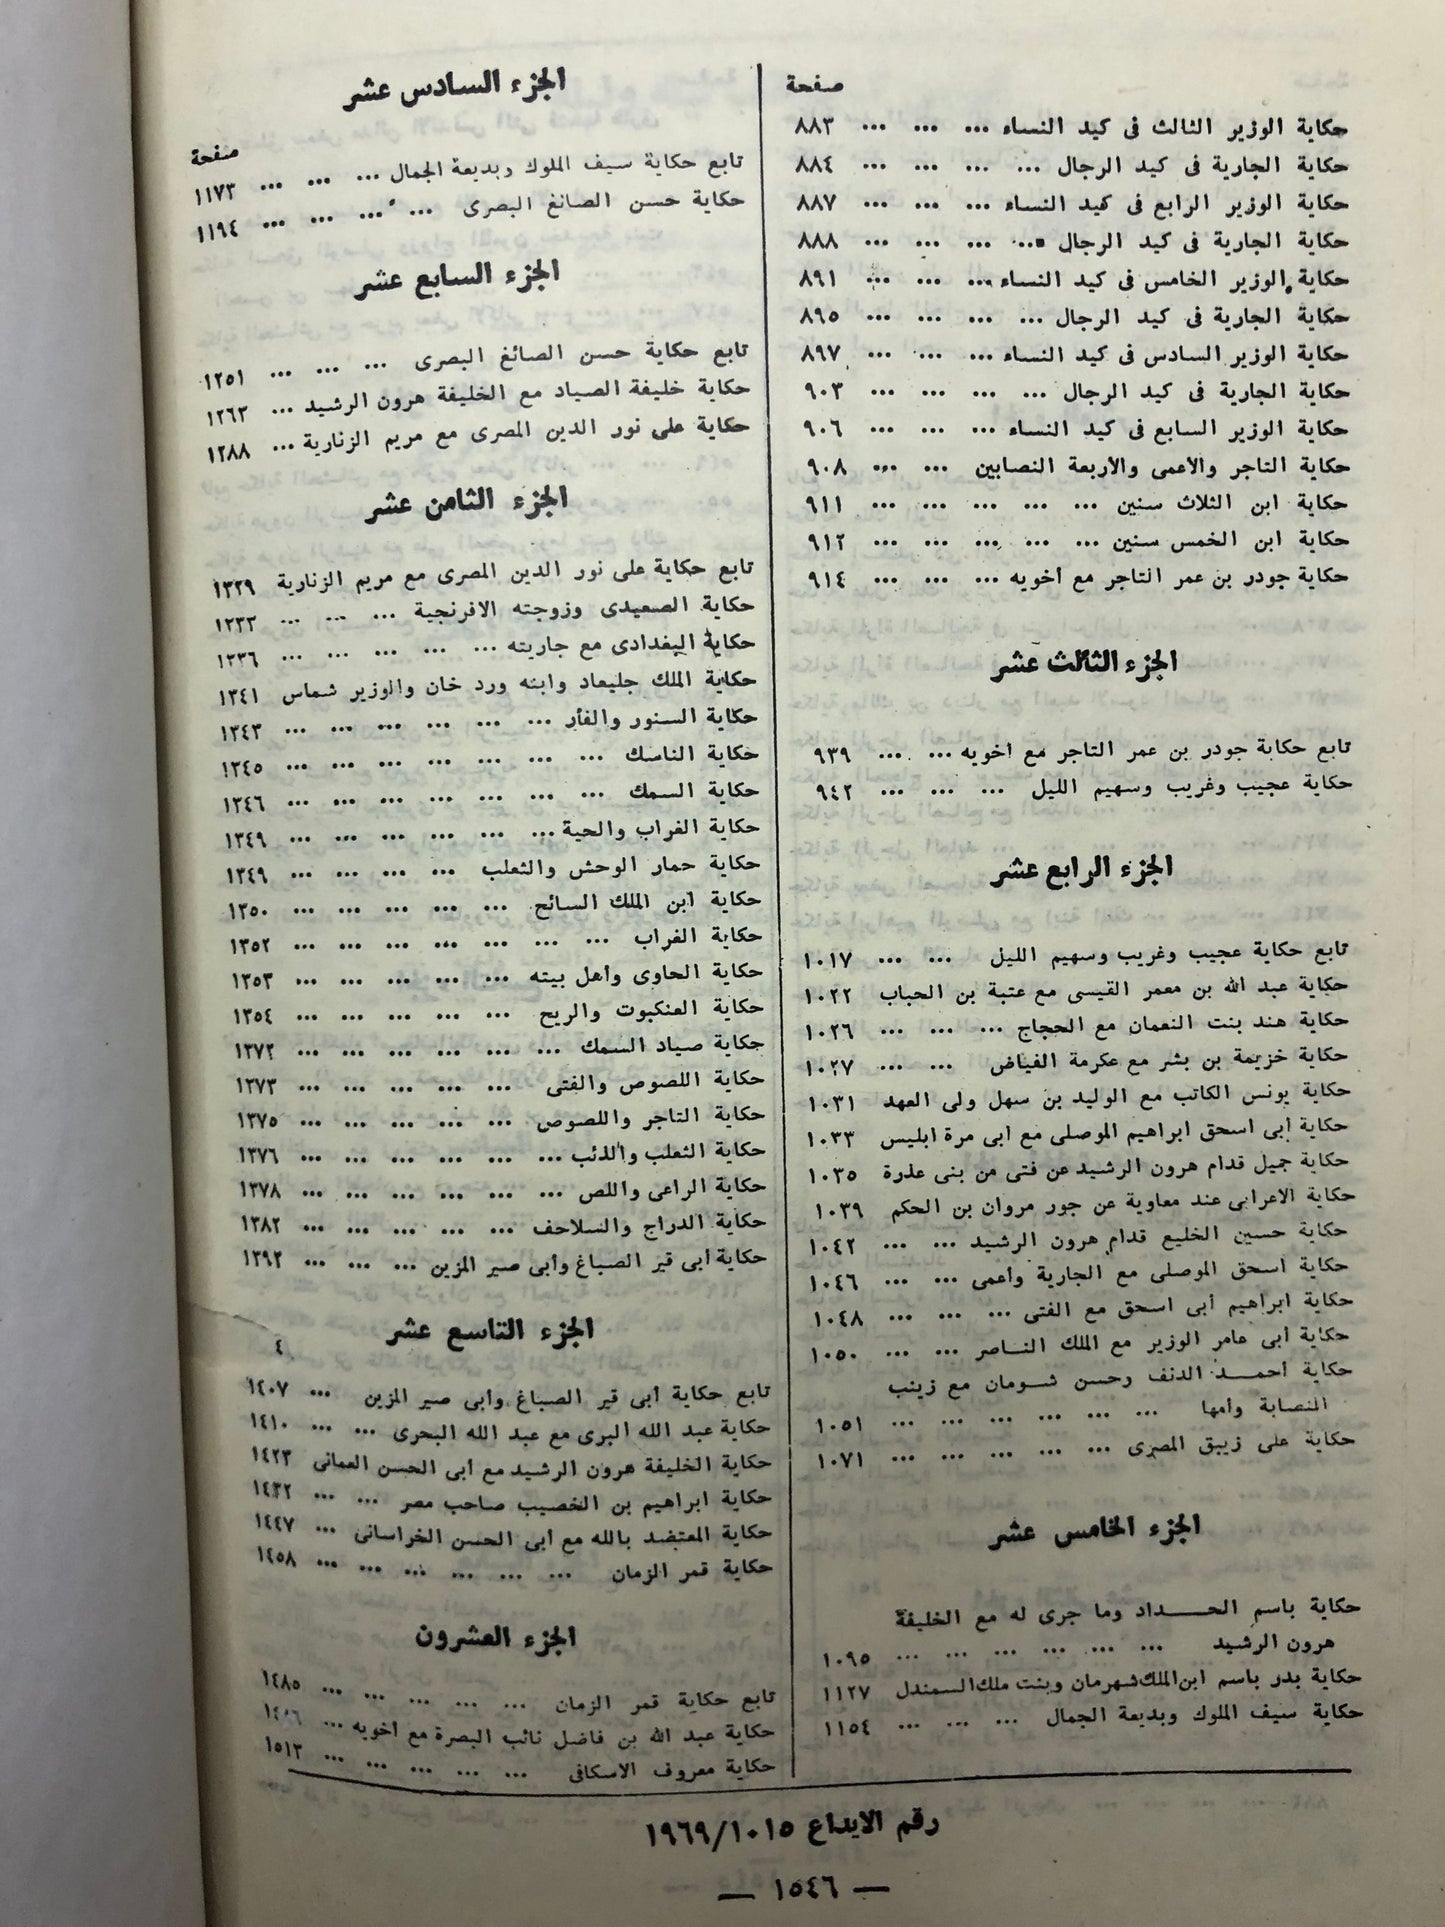 صفحة
حكاية الوزير الثالث فى كيد النساء ... ... ... ٨٨٣
حكاية الجارية فى كيد الرجال ... ... ... ... ٨٨٤
حكاية الوزير الرابع فى كيد النساء ... ... ... ٨٨٧
حكاية الجارية فى كيد الرجال ... ... ... ... ٨٨٨
حكاية الوزير الخامس فى كيد النساء ... ... ... ٨٩١
حكاية الجارية فى كيد الرجال ... ... ... ... ٨٩٥
حكاية الوزير السادس فى كيد النساء ... ... ... ٨٩٧
حكاية الجارية فى كيد الرجال ... ... ... ... ٩٠٣
حكاية الوزير السابع فى كيد النساء ... ... ... ٩٠٦
حكاية التاجر والأعمى والأربعة النصابين ... ... ٩٠٨
حكاية ابن الثلاث سنين ... ... ... ... ... ٩١١
حكاية ابن الخمس سنين ... ... ... ... ... ٩١٢
حكاية جودر بن عمر التاجر مع أخويه ... ... ... ٩١٤
الجزء الثالث عشر
تابع حكاية جودر بن عمر التاجر مع أخويه ... ... ٩٣٩
حكاية عجيب وغريب وسهيم الليل ... ... ... ٩٤٢
الجزء الرابع عشر
تابع حكاية عجيب وغريب وسهيم الليل ... ... ١٠١٧
حكاية عبد الله بن معمر القيسى مع عتبة بن الحباب ١٠٢٢
حكاية هند بنت النعمان مع الحجاج ... ... ... ١٠٢٦
حكاية خزيمة بن بشر مع عكرمة الفياض ... ... ١٠٢٧
حكاية يونس الكاتب مع الوليد بن سهل ولى العهد ١٠٣١
حكاية أبى اسحق ابراهيم الموصلى مع أبى مرة ابليس ١٠٣٣
حكاية جميل قدام هرون الرشيد عن فتى من بنى عذرة ١٠٣٥
حكاية الاعرابى عند معاوية عن جور مروان بن الحكم ١٠٣٩
حكاية حسين الخليع قدام هرون الرشيد ... ... ١٠٤٢
حكاية اسحق الموصلى مع الجارية وأعمى ... ... ١٠٤٦
حكاية ابراهيم أبى اسحق مع الفتى ... ... ... ١٠٤٨
حكاية أبى عامر الوزير مع الملك الناصر ... ... ١٠٥٠
حكاية أحمد الدنف وحسن شومان مع زينب
النصابة وأمها ... ... ... ... ... ... ١٠٥١
حكاية على زيبق المصرى ... ... ... ... ... ١٠٧١
الجزء الخامس عشر
حكاية باسم الحداد وما جرى له مع الخليفة
هرون الرشيد ... ... ... ... ... ... ١٠٩٥
حكاية بدر باسم ابن الملك شهرمان وبنت ملك السمندل ١١٢٧
حكاية سيف الملوك وبديعة الجمال ... ... ... ١١٥٤
الجزء السادس عشر
صفحة
تابع حكاية سيف الملوك وبديعة الجمال ... ... ... ١١٧٣
حكاية حسن الصائغ البصرى ... ... ... ... ١١٩٤
الجزء السابع عشر
تابع حكاية حسن الصائغ البصرى ... ... ... ١٢٥١
حكاية خليفة الصياد مع الخليفة هرون الرشيد ... ١٢٦٣
حكاية على نور الدين المصرى مع مريم الزنارية ... ١٢٨٨
الجزء الثامن عشر
تابع حكاية على نور الدين المصرى مع مريم الزنارية ١٣٢٩
حكاية الصعيدى وزوجته الافرنجية ... ... ... ١٣٣٣
حكاية البغدادى مع جاريته ... ... ... ... ... ١٣٣٦
حكاية الملك جليعاد وابنه ورد خان والوزير شماس ١٣٤١
حكاية السنور والفأر ... ... ... ... ... ... ١٣٤٣
حكاية الناسك ... ... ... ... ... ... ... ١٣٤٥
حكاية السمك ... ... ... ... ... ... ... ١٣٤٦
حكاية الغراب والحية ... ... ... ... ... ... ١٣٤٩
حكاية حمار الوحش والثعلب ... ... ... ... ١٣٤٩
حكاية ابن الملك السائح ... ... ... ... ... ... ١٣٥٠
حكاية الغراب ... ... ... ... ... ... ... ١٣٥٢
حكاية الحاوى وأهل بيته ... ... ... ... ... ١٣٥٣
حكاية العنكبوت والريح ... ... ... ... ... ١٣٥٤
حكاية صياد السمك ... ... ... ... ... ... ١٣٧٢
حكاية اللصوص والفتى ... ... ... ... ... ١٣٧٣
حكاية التاجر واللصوص ... ... ... ... ... ١٣٧٥
حكاية الثعلب والذئب ... ... ... ... ... ... ١٣٧٦
حكاية الراعى واللص ... ... ... ... ... ... ١٣٧٨
حكاية الدراج والسلاحف ... ... ... ... ... ١٣٨٢
حكاية أبى قير الصباغ وأبى صير المزين ... ... ... ١٣٩٢
الجزء التاسع عشر
٤
تابع حكاية أبى قير الصباغ وأبى صير المزين ... ١٤٠٧
حكاية عبد الله البرى مع عبد الله البحرى ... ... ١٤١٠
حكاية الخليفة هرون الرشيد مع أبى الحسن العمانى ١٤٢٣
حكاية ابراهيم بن الخصيب صاحب مصر ... ... ١٤٣٢
حكاية المعتضد بالله مع أبى الحسن الخراسانى ... ١٤٤٧
حكاية قمر الزمان ... ... ... ... ... ... ١٤٥٨
الجزء العشرون
تابع حكاية قمر الزمان ... ... ... ... ... ١٤٨٥
حكاية عبد الله بن فاضل نائب البصرة مع أخويه ...
حكاية معروف الاسكافى ... ... ... ... ... ١٥١٣
رقم الايداع ١٩٦٩/١٠١٥
— ١٥٤٦ —